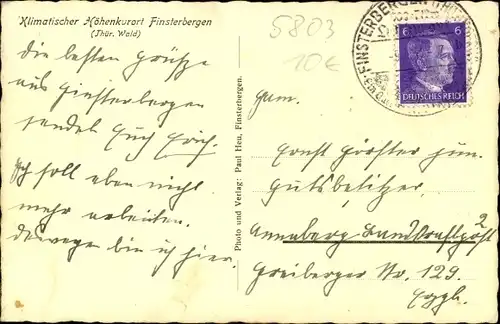 Klimatischer Höhenkurort Finsterbergen
(Thür. Wald)
5803
10€
FINSTERBERGEN
6 6
DEUTSCHES REICH
Die besten Grüße
aus Finsterbergen
sendet Euch Erich.
Ich soll eben nicht
mehr arbeiten.
Deswegen bin ich hier.
Photo und Verlag: Paul Heu, Finsterbergen.
Fam.
Ernst Förster jun.
Gutsbesitzer
Annaberg Landkraftpost 2
Freiberger Str. 129.
Erzgb.